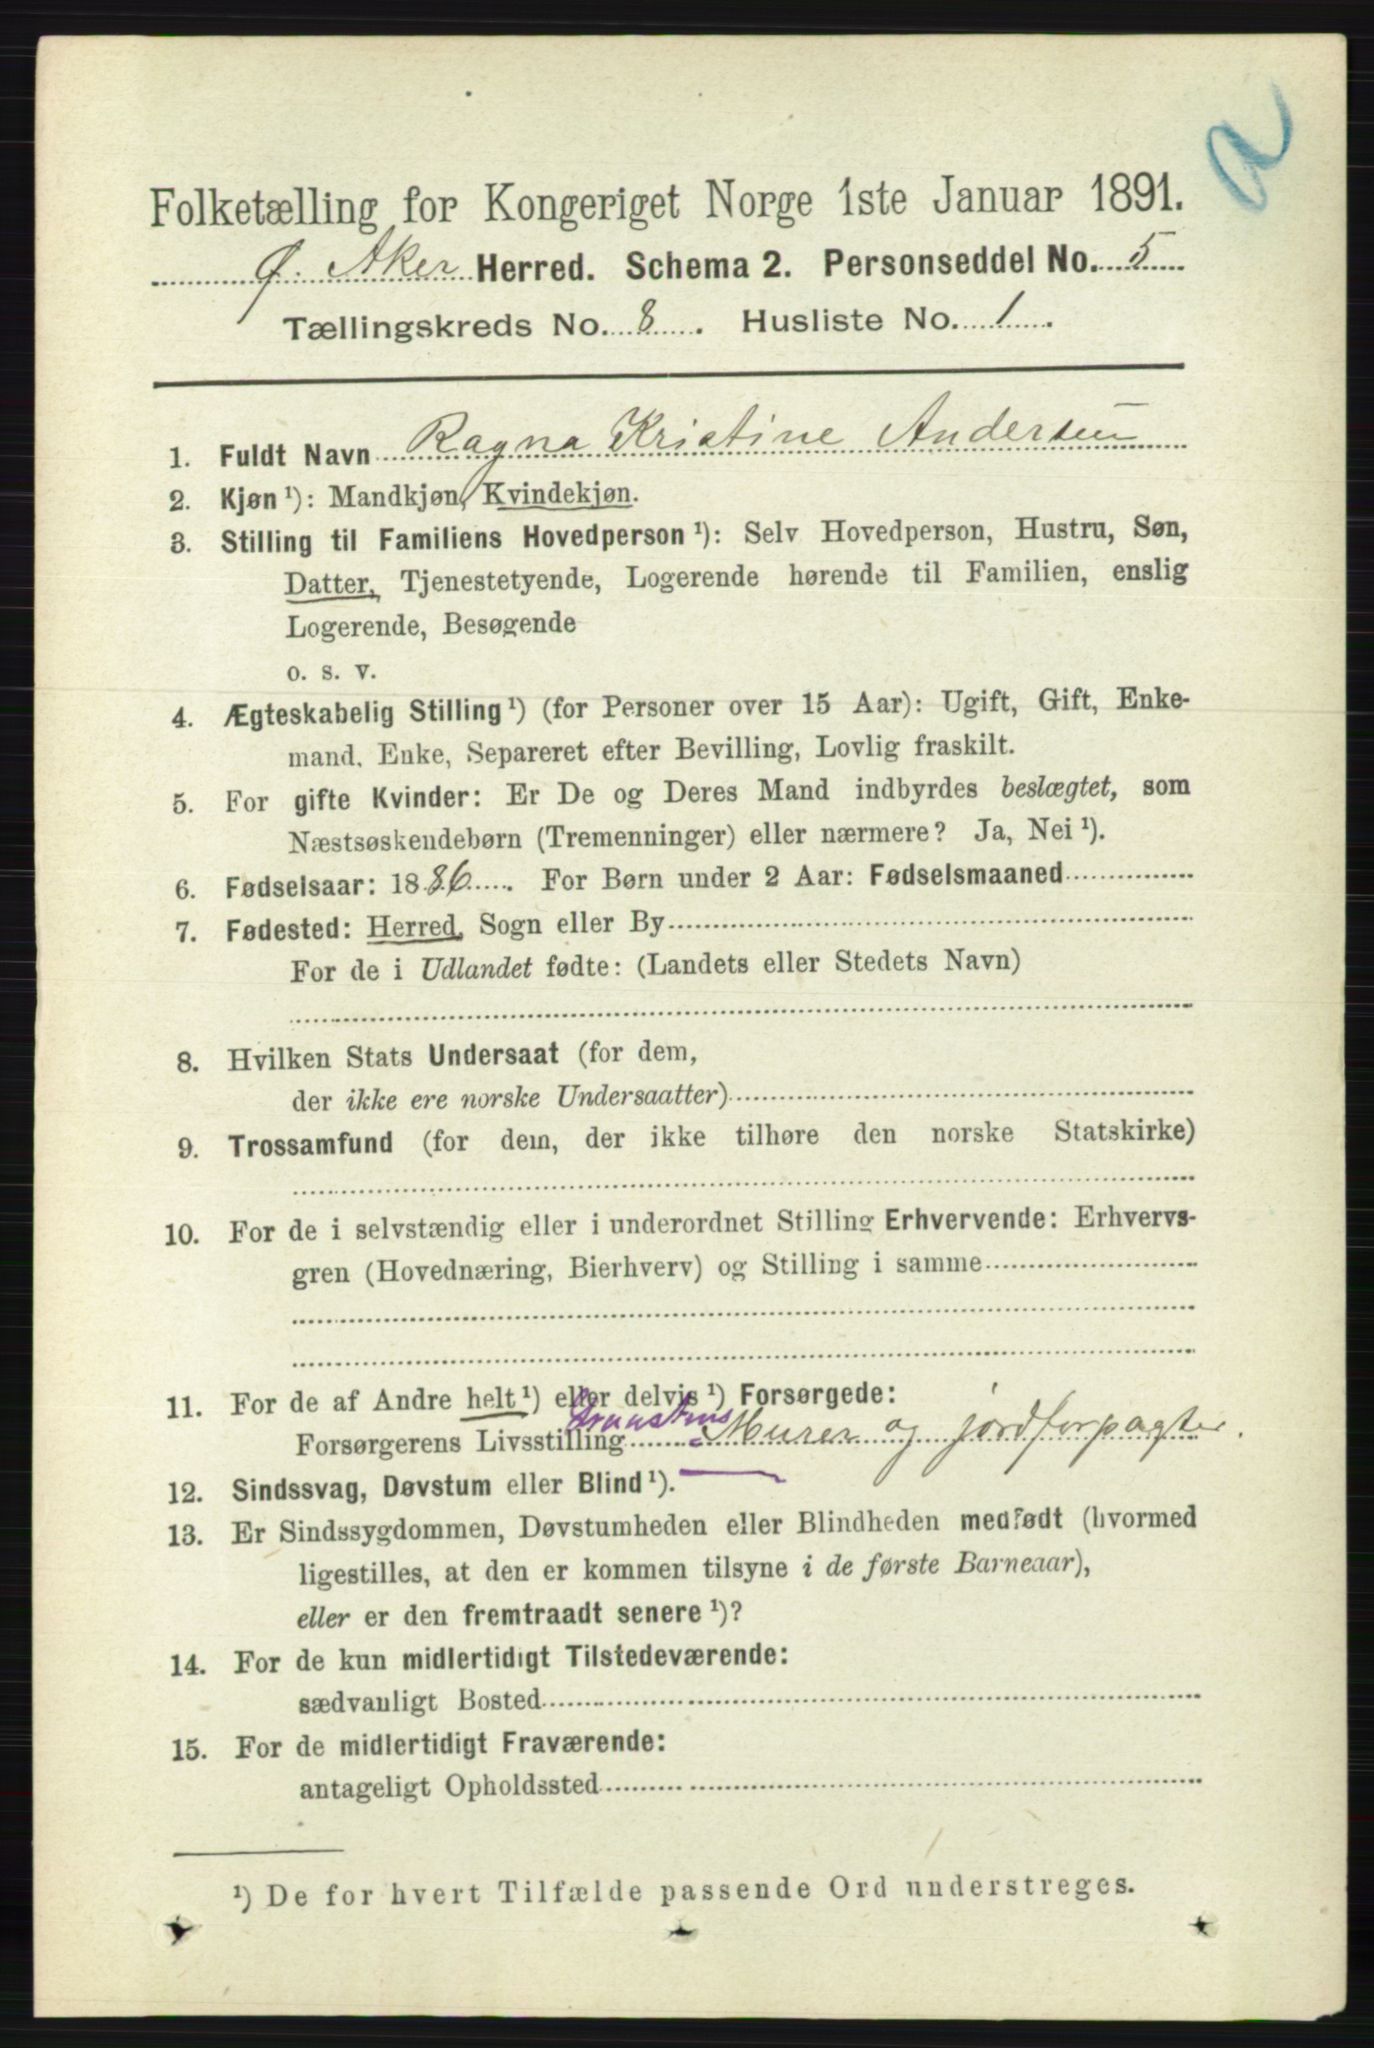 a
Folketælling for Kongeriget Norge 1ste Januar 1891.
Ø. Aker Herred. Schema 2. Personseddel No. 5
Tællingskreds No. 8. Husliste No. 1.
1. Fuldt Navn Ragna Kristine Andersen
2. Kjøn¹): Mandkjøn, Kvindekjøn.
3. Stilling til Familiens Hovedperson¹): Selv Hovedperson, Hustru, Søn,
Datter, Tjenestetyende, Logerende hørende til Familien, enslig
Logerende, Besøgende
o. s. v.
4. Ægteskabelig Stilling¹) (for Personer over 15 Aar): Ugift, Gift, Enke-
mand, Enke, Separeret efter Bevilling, Lovlig fraskilt.
5. For gifte Kvinder: Er De og Deres Mand indbyrdes beslægtet, som
Næstsøskendebørn (Tremenninger) eller nærmere? Ja, Nei¹).
6. Fødselsaar: 1886. For Børn under 2 Aar: Fødselsmaaned
7. Fødested: Herred, Sogn eller By
For de i Udlandet fødte: (Landets eller Stedets Navn)
8. Hvilken Stats Undersaat (for dem,
der ikke ere norske Undersaatter)
9. Trossamfund (for dem, der ikke tilhøre den norske Statskirke)
10. For de i selvstændig eller i underordnet Stilling Erhvervende: Erhvervs-
gren (Hovednæring, Bierhverv) og Stilling i samme
11. For de af Andre helt¹) eller delvis¹) Forsørgede:
Forsørgerens Livsstilling Murer og jordforpagter.
12. Sindssvag, Døvstum eller Blind¹).
13. Er Sindssygdommen, Døvstumheden eller Blindheden medfødt (hvormed
ligestilles, at den er kommen tilsyne i de første Barneaar),
eller er den fremtraadt senere¹)?
14. For de kun midlertidigt Tilstedeværende:
sædvanligt Bosted
15. For de midlertidigt Fraværende:
antageligt Opholdssted
¹) De for hvert Tilfælde passende Ord understreges.